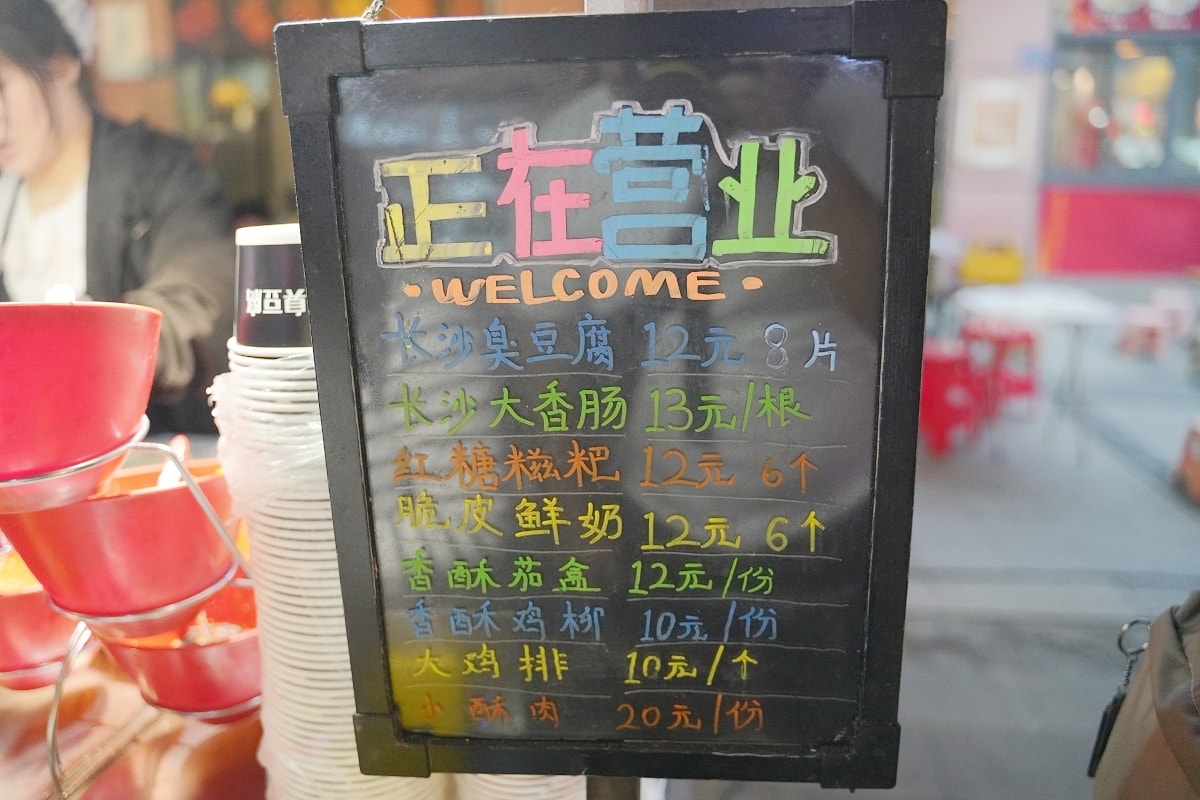 正在营业
·WELCOME·
长沙臭豆腐 12元 8片
长沙大香肠 13元/根
红糖糍粑 12元 6个
脆皮鲜奶 12元 6个
香酥茄盒 12元/份
香酥鸡柳 10元/份
大鸡排 10元/个
小酥肉 20元/份
臭豆腐